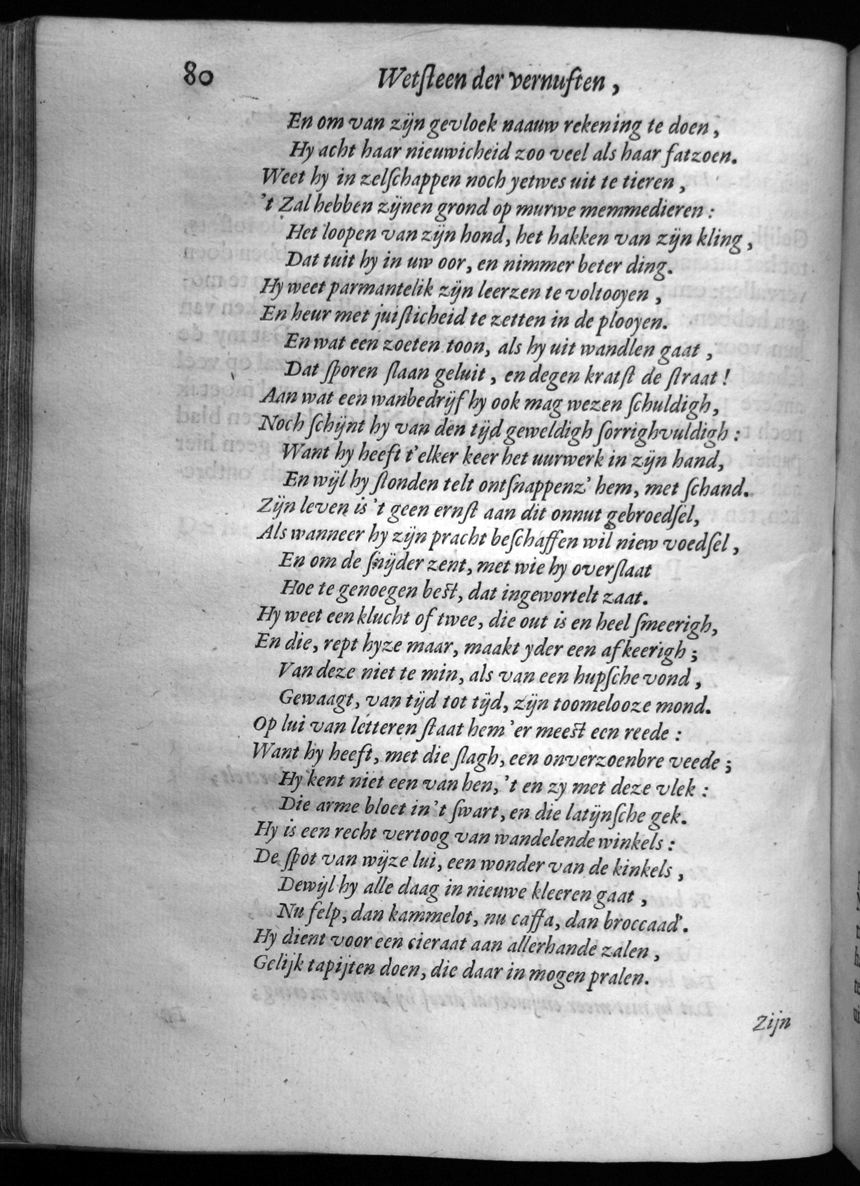 80 Wetſteen der vernuften,
En om van zijn gevloek naauw rekening te doen,
Hy acht haar nieuwicheid zoo veel als haar fatzoen.
Weet hy in zelſchappen noch yetwes uit te tieren,
't Zal hebben zijnen grond op murwe memmedieren:
Het loopen van zijn hond, het hakken van zijn kling,
Dat tuit hy in uw oor, en nimmer beter ding.
Hy weet parmantelik zijn leerzen te voltooyen,
En heur met juiſticheid te zetten in de plooyen.
En wat een zoeten toon, als hy uit wandlen gaat,
Dat ſporen ſlaan geluit, en degen kratſt de ſtraat!
Aan wat een wanbedrijf hy ook mag wezen ſchuldigh,
Noch ſchijnt hy van den tijd geweldigh ſorrighvuldigh:
Want hy heeft t'elker keer het uurwerk in zijn hand,
En wijl hy ſtonden telt ontſnappenz' hem, met ſchand.
Zijn leven is 't geen ernſt aan dit onnut gebroedſel,
Als wanneer hy zijn pracht beſchaffen wil niew voedſel,
En om de ſnijder zent, met wie hy overſlaat
Hoe te genoegen beſt, dat ingewortelt zaat.
Hy weet een klucht of twee, die out is en heel ſmeerigh,
En die, rept hyze maar, maakt yder een afkeerigh;
Van deze niet te min, als van een hupſche vond,
Gewaagt, van tijd tot tijd, zijn toomelooze mond.
Op lui van letteren ſtaat hem 'er meeſt een reede:
Want hy heeft, met die ſlagh, een onverzoenbre veede;
Hy kent niet een van hen, 't en zy met deze vlek:
Die arme bloet in't ſwart, en die latijnſche gek.
Hy is een recht vertoog van wandelende winkels:
De ſpot van wijze lui, een wonder van de kinkels,
Dewijl hy alle daag in nieuwe kleeren gaat,
Nu felp, dan kammelot, nu caffa, dan broccaad'.
Hy dient voor een cieraat aan allerhande zalen,
Gelijk tapijten doen, die daar in mogen pralen.
Zijn